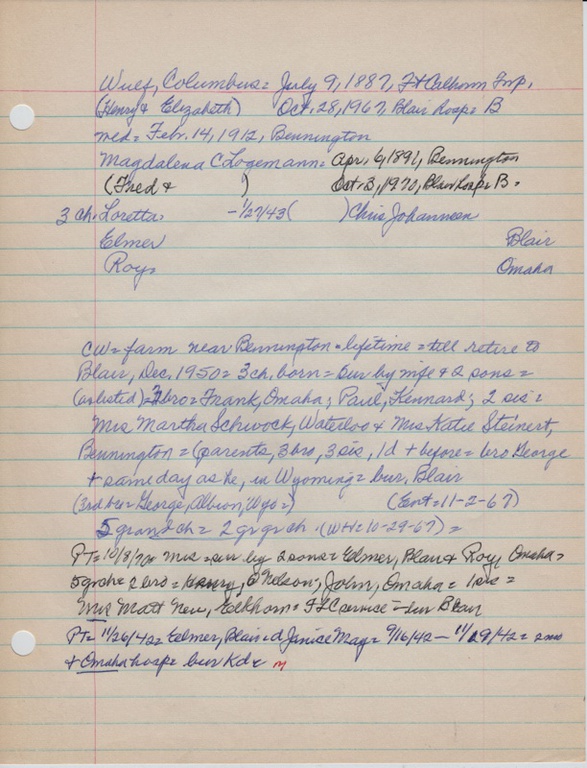 Wulf, Columbus = July 9, 1887, Ft Calhoun Twp,
(Henry & Elizabeth) Oct. 28, 1967, Blair Hosp = B
med = Feb. 14, 1912, Bennington
Magdalena C Logemann = Apr. 6, 1891, Bennington
(Fred & ) Oct. 3, 1970, Blair Hosp = B =
3 ch = Loretta = - 1/27/43 ( ) Chris Johannsen
Elmer Blair
Roy = Omaha
CW = farm near Bennington = lifetime = till retire to
Blair, Dec, 1950 = 3 ch. born = sur by wife & 2 sons =
(as listed) = bro = Frank, Omaha; Paul, Kennard; 2 sis =
Mrs Martha Schwock, Waterloo & Mrs Katie Steinert,
Bennington = (parents, 3 bro, 3 sis, 1 d + before = bro George
+ same day as he, in Wyoming = bur, Blair
(3rd bro = George, Albion, Wyo =) (Ent = 11-2-67)
5 grandch = 2 gr gr ch = (WH = 10-29-67) =
PT = 10/8/70 = Mrs = sur by 2 sons = Elmer, Blair & Roy, Omaha =
5 grch = 2 bro = Nelson; John, Omaha = 1 sis =
Mrs Matt New, Elkhorn = FLC service = bur Blair
PT = 11/26/42 = Elmer, Blair = d Janice May = 9/16/42 - 11/ 9/42 = 2 mo
+ Omaha hosp = bur Kd = m